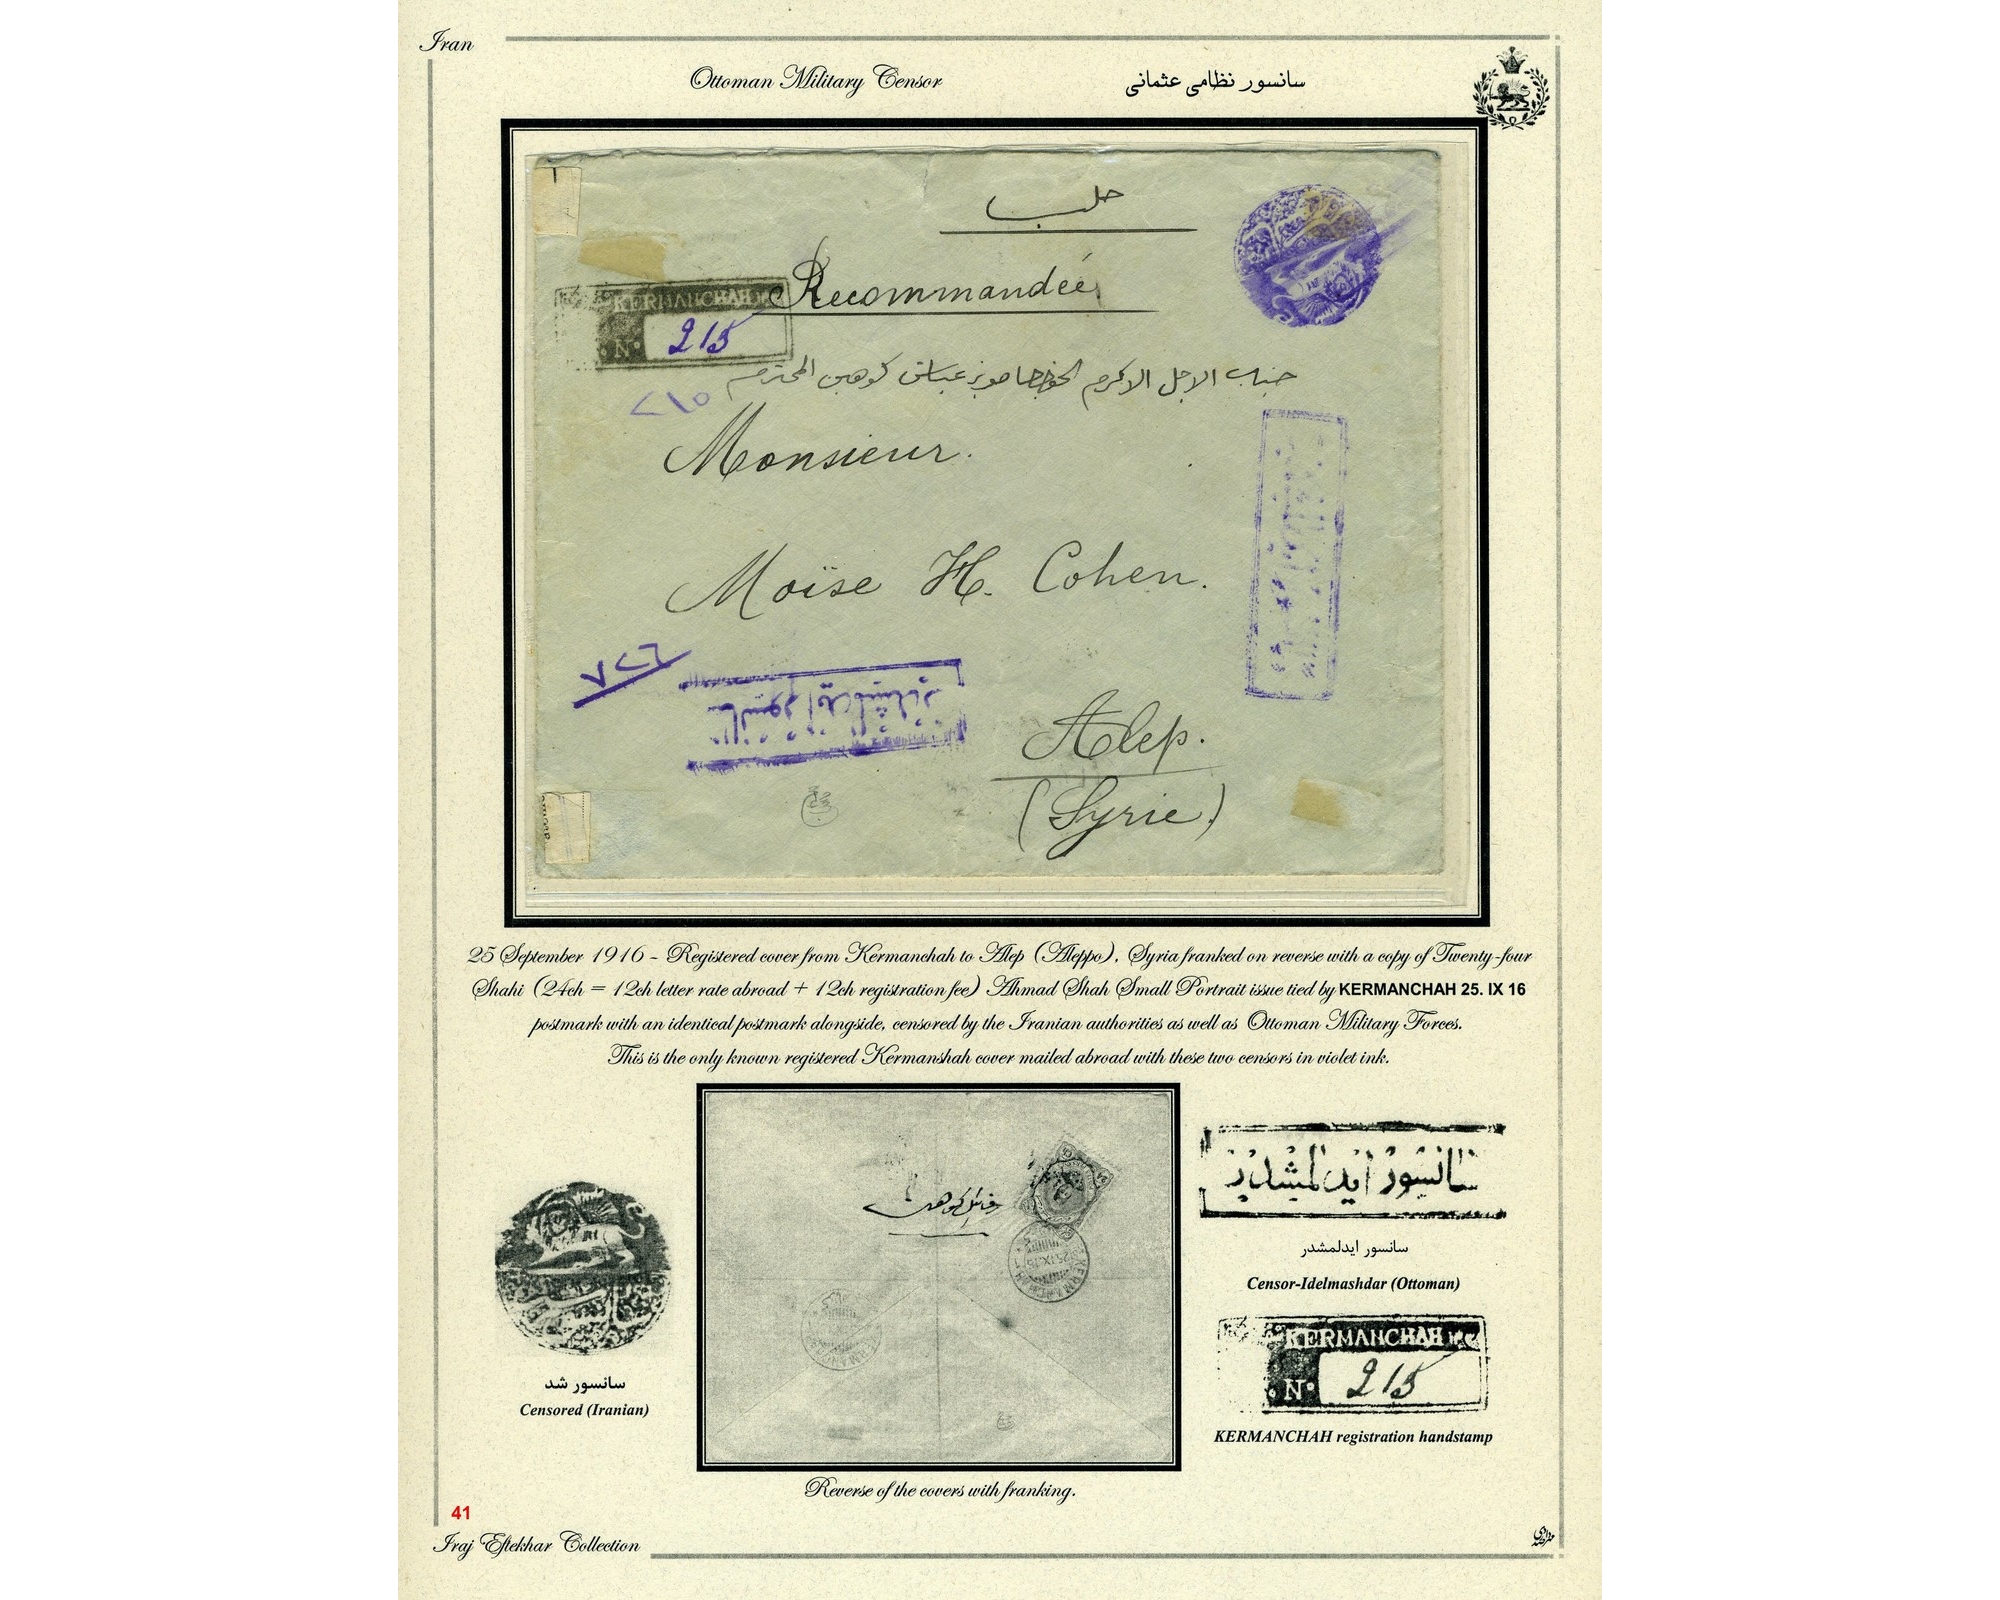 Iran
Ottoman Military Censor
سانسور نظامی عثمانی
حلب
Recommandée
KERMANCHAH
No 215
جناب الاجل الاكرم الخواجا مويز عباش كوهين المحترم
٢١٥
Monsieur.
Moïse H. Cohen.
٧٢٦
سانسور ايدلمشدر
Alep.
(Syrie)
25 September 1916 - Registered cover from Kermanchah to Alep (Aleppo), Syria franked on reverse with a copy of Twenty-four
Shahi (24ch = 12ch letter rate abroad + 12ch registration fee) Ahmad Shah Small Portrait issue tied by KERMANCHAH 25. IX 16
postmark with an identical postmark alongside, censored by the Iranian authorities as well as Ottoman Military Forces.
This is the only known registered Kermanshah cover mailed abroad with these two censors in violet ink.
KERMANCHAH
25.IX.16
سانسور ايدلمشدر
سانسور ایدلمشدر
Censor-Idelmashdar (Ottoman)
KERMANCHAH
No 215
KERMANCHAH registration handstamp
سانسور شد
Censored (Iranian)
Reverse of the covers with franking.
41
Iraj Eftekhar Collection